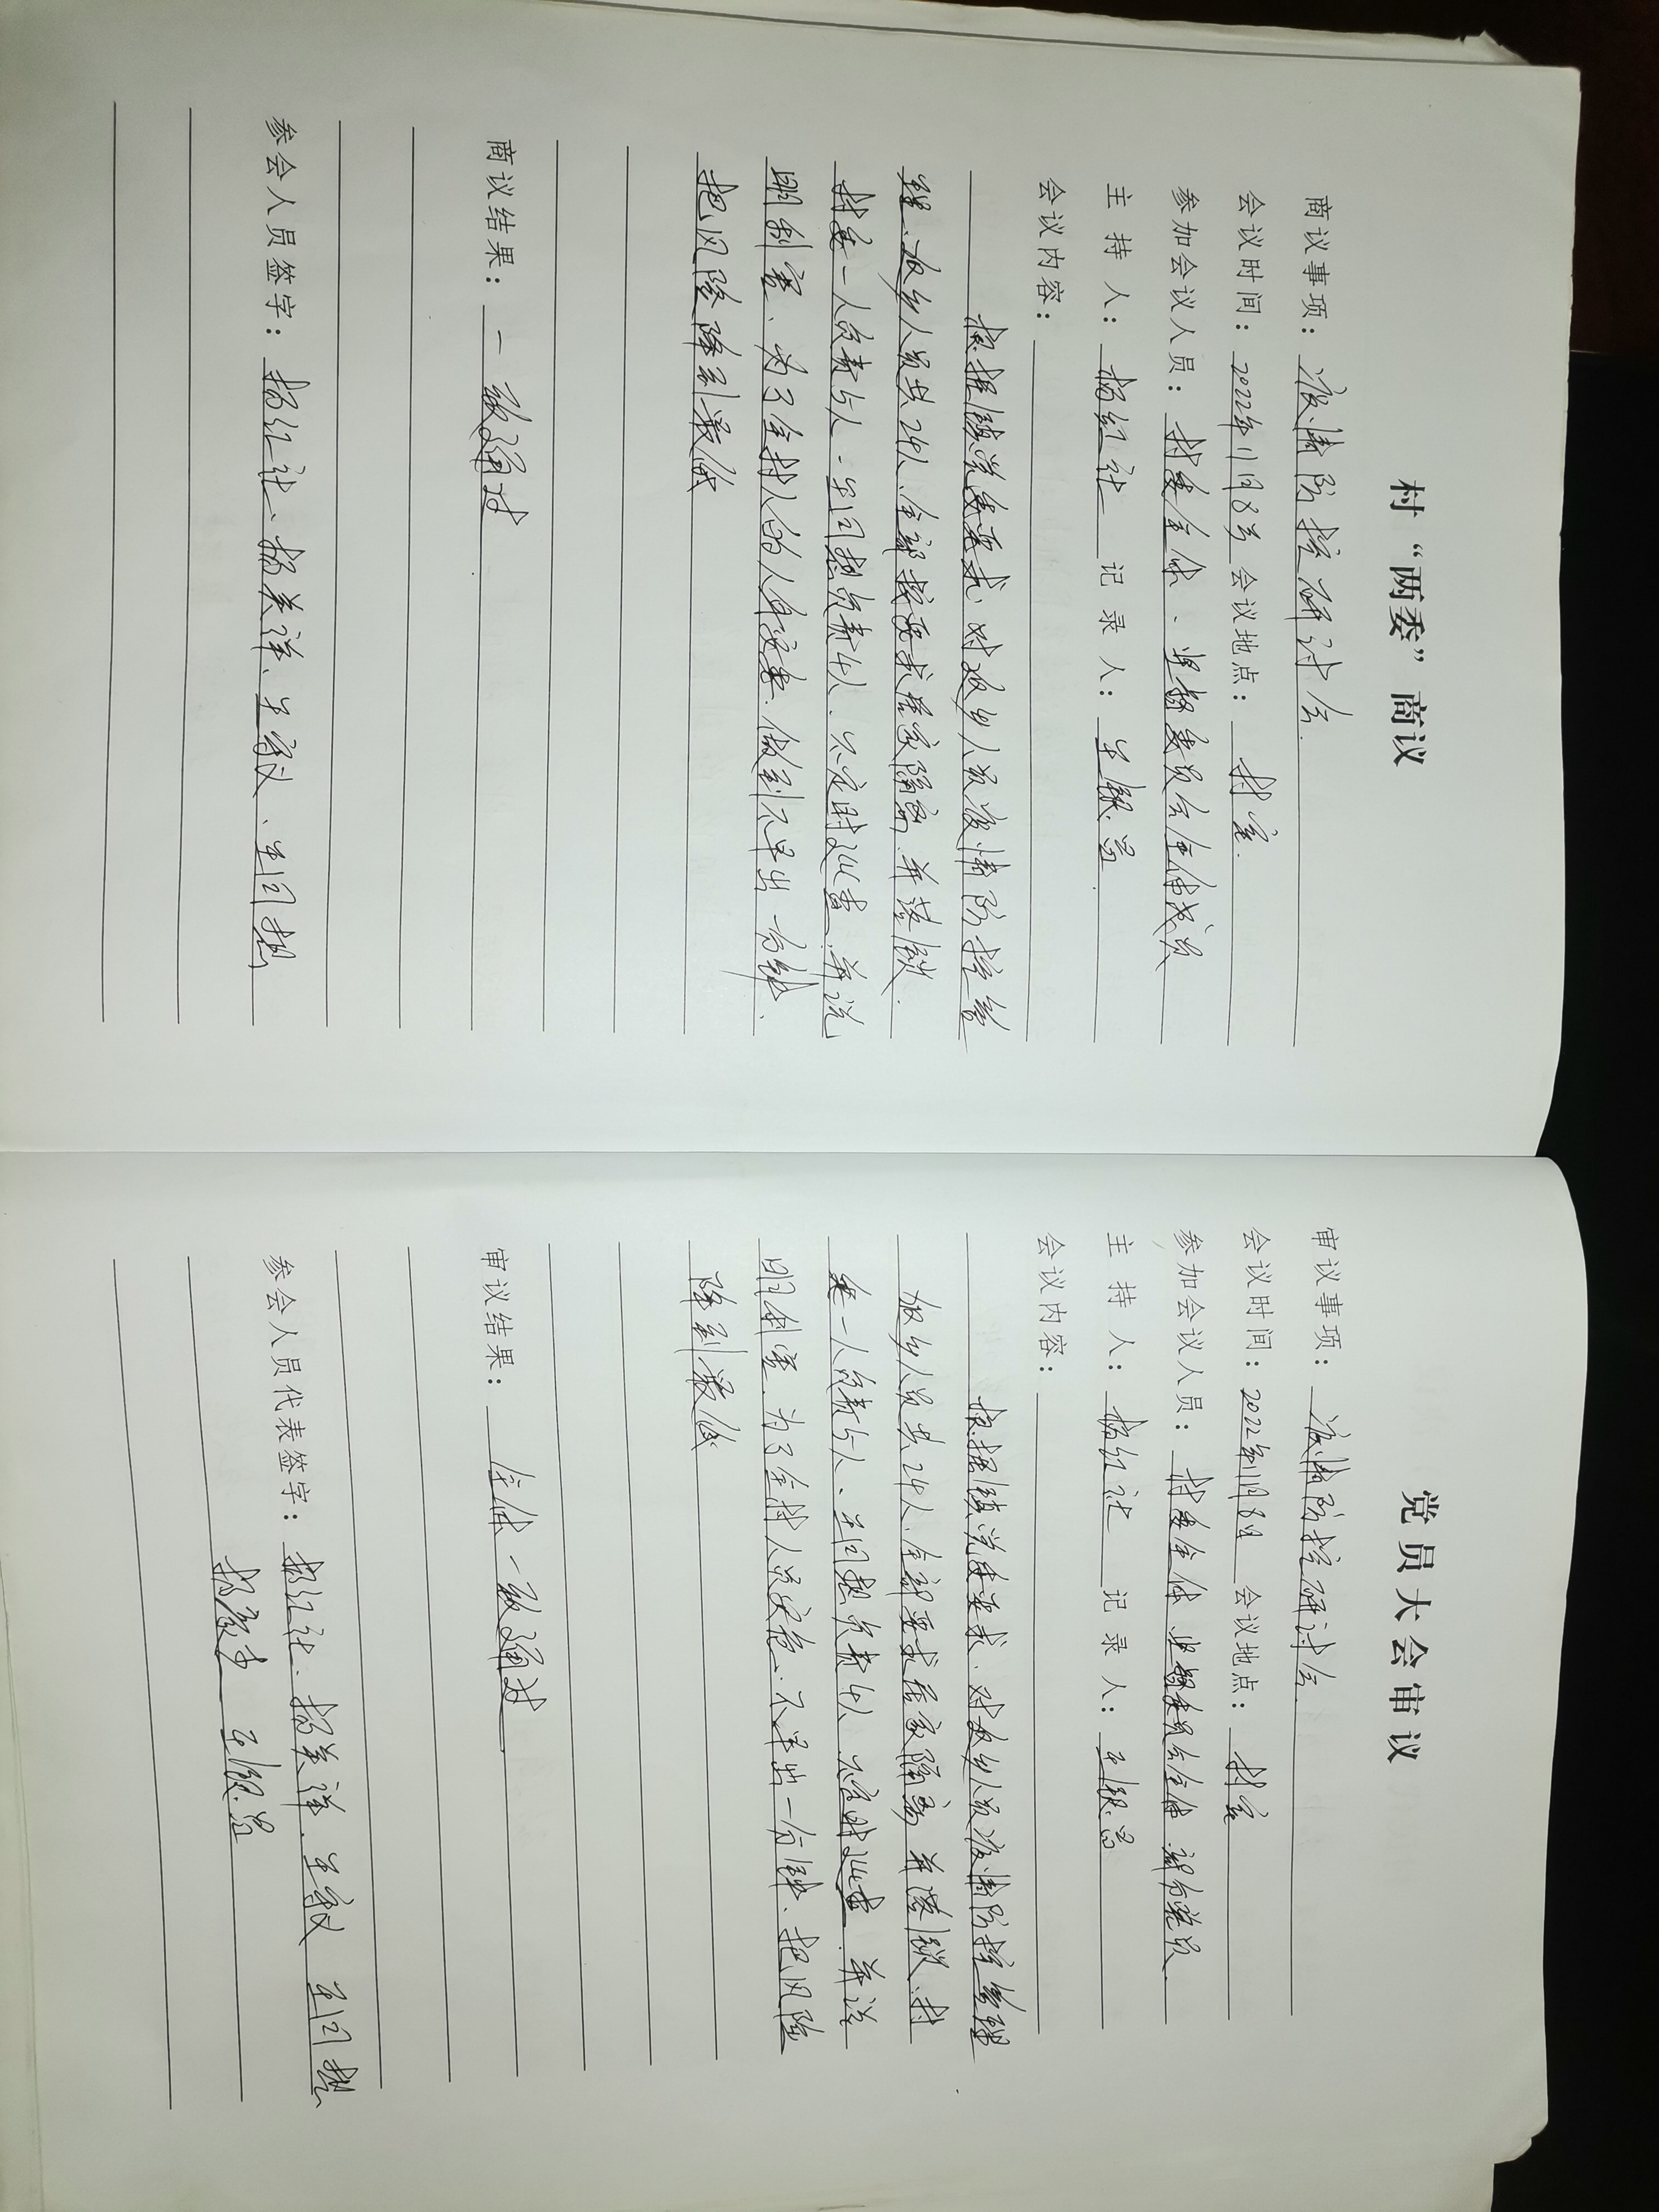 村“两委”商议
商议事项：疫情防控研讨会.
会议时间：2022年11月8号 会议地点：村室.
参加会议人员：村委全体、监督委员会全体成员
主持人：杨红社 记录人：王银昌
会议内容：
根据镇党委要求.对返乡人员疫情防控管
理、返乡人员共24人、全部按要求居家隔离、并落锁.
村委一人负责5人、王回想负责4人、不定时巡查、并说
明利害、为了全村人的人身安危、做到不早出一分钟、
把风险降到最低
商议结果：一致通过
参会人员签字：杨红社、杨关祥、王守义、王回想
党员大会审议
审议事项：疫情防控研讨会.
会议时间：2022年11月8日 会议地点：村室
参加会议人员：村委全体 监督委员会全体 部分党员.
主持人：杨红社 记录人：王银昌
会议内容：
根据镇党委要求、对返乡人员疫情防控管理
返乡人员共24人、全部要求居家隔离 并落锁、村
委一人负责5人、王回想负责4人 不定时巡查、并说
明利害、为了全村人员安危、不早出一分钟、把风险
降到最低
审议结果：全体一致通过.
参会人员代表签字：杨红社、杨关祥、王守义 王回想
王银昌